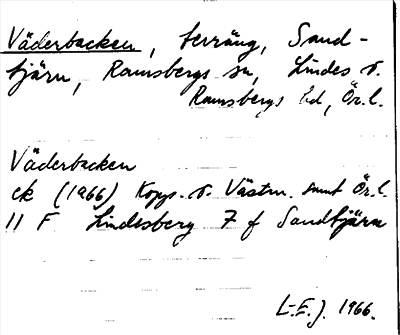 Väderbacken, terräng, Sand-
tjärn, Ramsbergs sn, Lindes o.
Ramsbergs hd, Ör. l.
Väderbacken
ek (1966) Kopp. o. Västm. samt Ör. l.
11 F Lindesberg 7 f Sandtjärn
L-E. J. 1966.